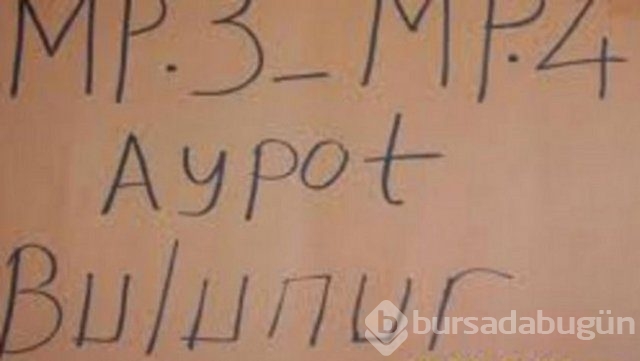 MP.3_MP.4
Aypot
Bulunur
bursadabugün